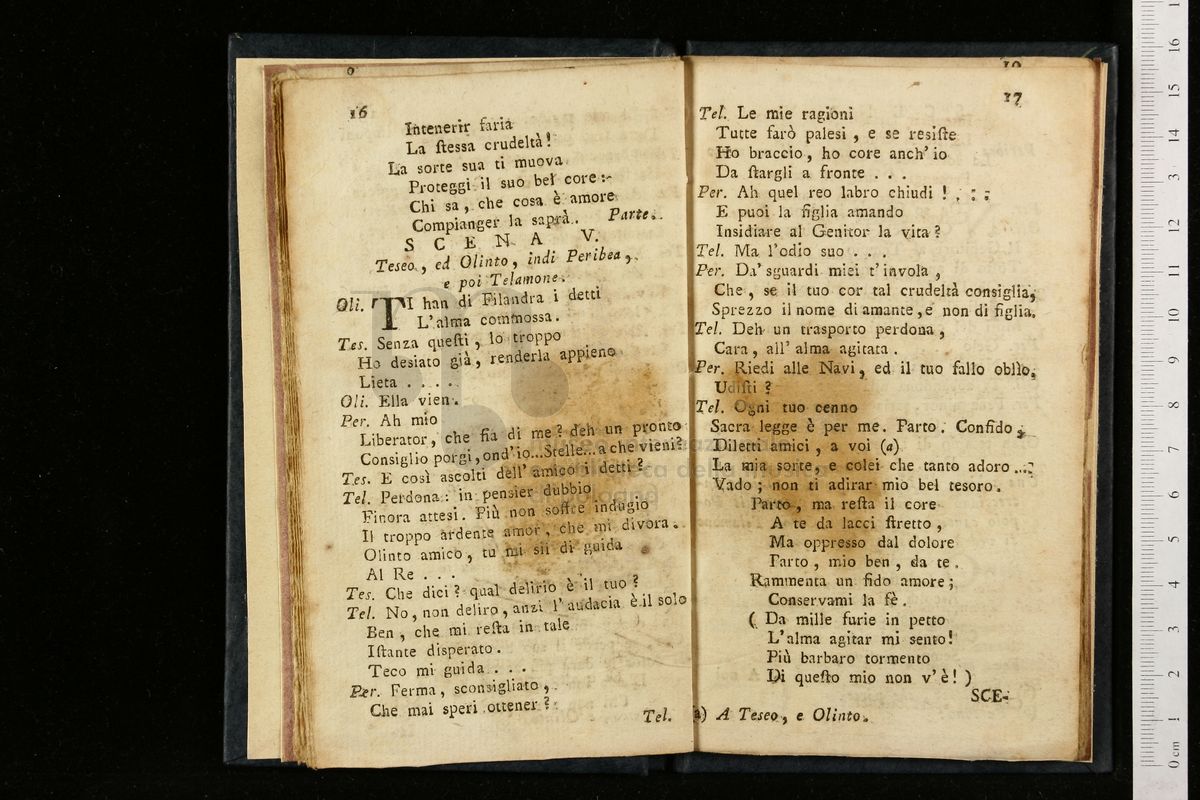 16
Intenerir faria
La ſteſſa crudeltà!
La sorte sua ti muova.
Proteggi il suo bel core:
Chi sa, che cosa è amore
Compianger la saprà. Parte.
SCENA V.
Teseo, ed Olinto, indi Peribea,
e poi Telamone.
Oli. TI han di Filandra i detti
L'alma commossa.
Tes. Senza queſti, lo troppo
Ho desiato già, renderla appieno
Lieta . . . .
Oli. Ella vien.
Per. Ah mio
Liberator, che fia di me? deh un pronto
Consiglio porgi, ond'io...Stelle...a che vieni?
Tes. E così ascolti dell' amico i detti?
Tel. Perdona: in pensier dubbio
Finora attesi. Più non soffre indugio
Il troppo ardente amor, che mi divora.
Olinto amico, tu mi sii di guida
Al Re . . .
Tes. Che dici? qual delirio è il tuo?
Tel. No, non deliro, anzi l'audacia è il solo
Ben, che mi reſta in tale
Iſtante disperato.
Teco mi guida . . .
Per. Ferma, sconsigliato,
Che mai speri ottener?
Tel.
17
Tel. Le mie ragioni
Tutte farò palesi, e se resiſte
Ho braccio, ho core anch'io
Da ſtargli a fronte . . .
Per. Ah quel reo labro chiudi! . . .
E puoi la figlia amando
Insidiare al Genitor la vita?
Tel. Ma l'odio suo . . .
Per. Da' sguardi miei t'invola,
Che, se il tuo cor tal crudeltà consiglia,
Sprezzo il nome di amante, e non di figlia.
Tel. Deh un trasporto perdona,
Cara, all' alma agitata.
Per. Riedi alle Navi, ed il tuo fallo obllo.
Udiſti?
Tel. Ogni tuo cenno
Sacra legge è per me. Parto. Confido,
Diletti amici, a voi (a)
La mia sorte, e colei che tanto adoro...
Vado; non ti adirar mio bel tesoro.
Parto, ma reſta il core
A te da lacci ſtretto,
Ma oppresso dal dolore
Parto, mio ben, da te.
Rammenta un fido amore;
Conservami la fè.
(Da mille furie in petto
L'alma agitar mi sento!
Più barbaro tormento
Di queſto mio non v'è!)
SCE-
a) A Teseo, e Olinto.